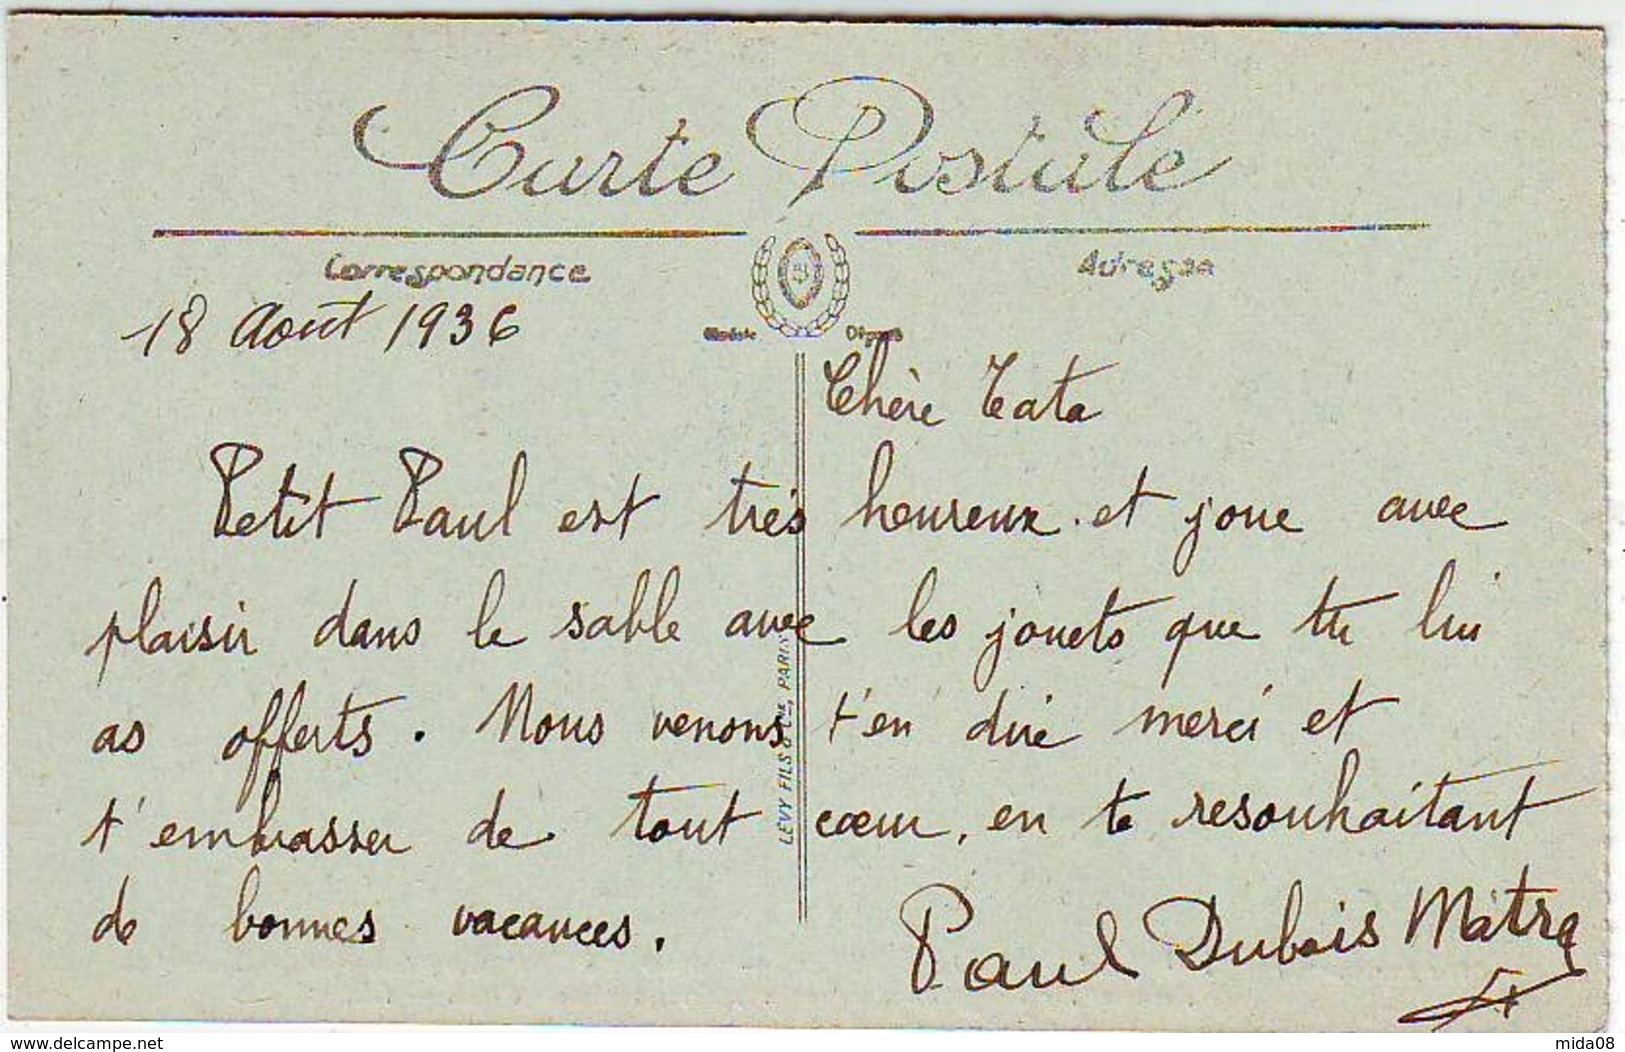 Carte Postale
Correspondance
Adresse
18 Août 1936
Chère Tata
Petit Paul est très heureux et joue avec
plaisir dans le sable avec les jouets que tu lui
as offerts. Nous venons t'en dire merci et
t'embrasser de tout cœur, en te resouhaitant
de bonnes vacances.
Paul Dubois
LEVY FILS & Cie, PARIS
www.delcampe.net
mida08